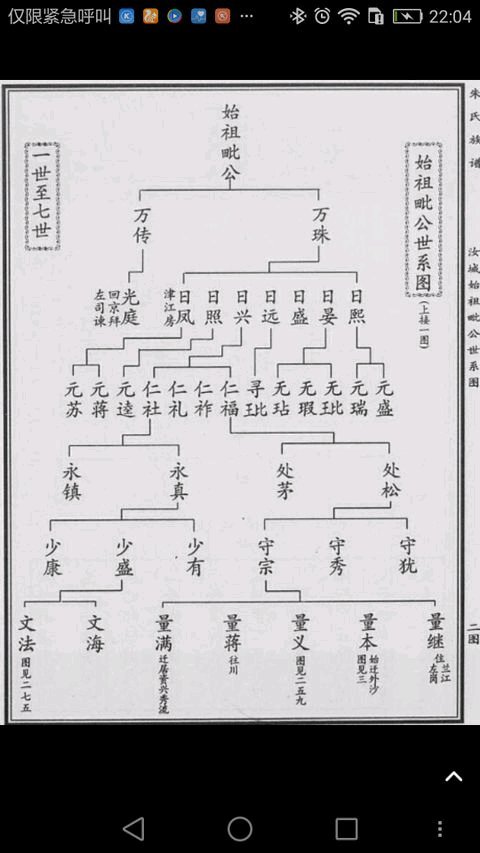 仅限紧急呼叫
22:04
朱氏族谱
汝城始祖毗公世系图
二图
始祖毗公世系图
(上接一图)
一世至七世
始祖毗公
万珠
万传
日熙
日晏
日盛
日远
日兴
日照
日凤
津江房
光庭
回京拜
左司谏
元盛
元瑞
无玭
无瑕
无玷
寻玭
仁福
仁祚
仁礼
仁社
元逵
元蒋
元苏
处松
处茅
永真
永镇
守犹
守秀
守宗
少有
少盛
少康
量继
住兰江
左岗
量本
始迁外沙
图见三
量义
图见二五九
量蒋
往川
量满
迁居资兴秀流
文海
文法
图见二七五